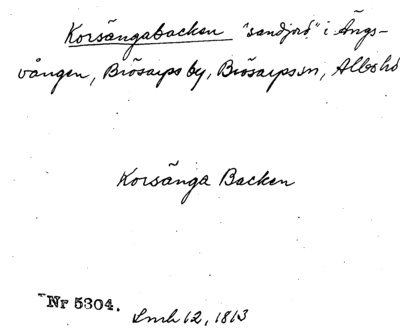 Korsängabacken "sandjord" i Ängs-
vången, Brösarps by, Brösarps sn, Albo hd
Korsänga Backen
Nr 5304.
Lmh 12, 1813